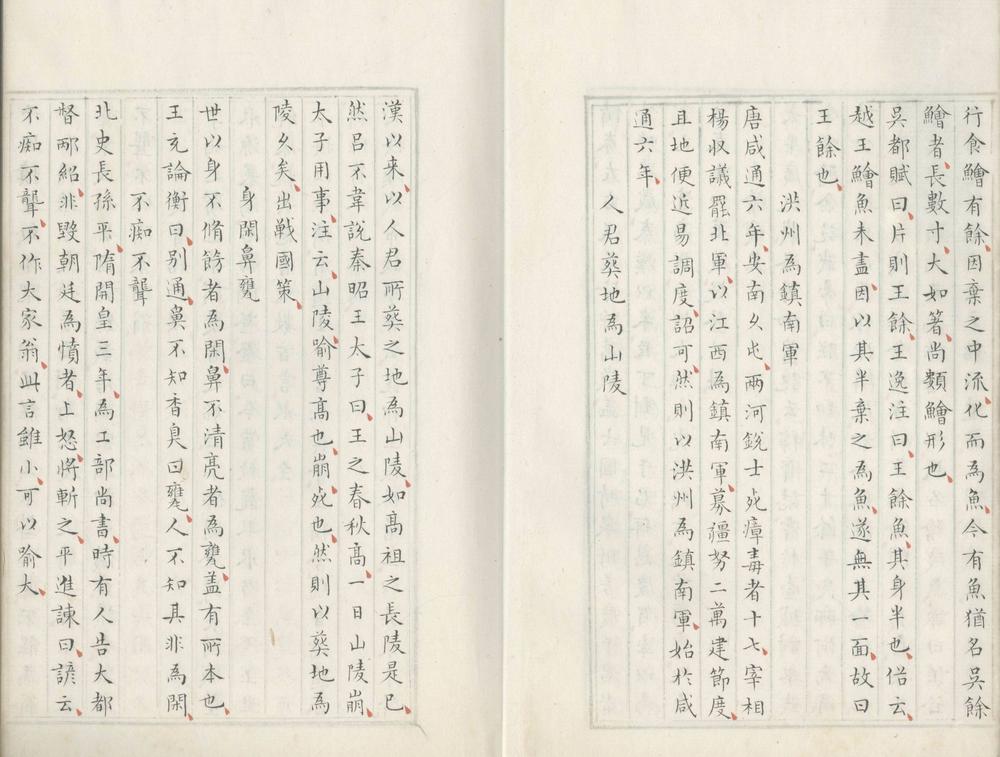 行食鱠有餘因棄之中流化而為魚今有魚猶名吳餘
鱠者長數寸大如箸尚類鱠形也
吳都賦曰片則王餘王逸注曰王餘魚其身半也俗云
越王鱠魚未盡因以其半棄之為魚遂無其一面故曰
王餘也
洪州為鎮南軍
唐咸通六年安南久屯兩河銳士死瘴毒者十七宰相
楊收議罷北軍以江西為鎮南軍募彊弩二萬建節度
且地便近易調度詔可然則以洪州為鎮南軍始於咸
通六年
人君葬地為山陵
漢以来以人君所葬之地為山陵如高祖之長陵是已
然呂不韋說秦昭王太子曰王之春秋高一日山陵崩
太子用事注云山陵喻尊高也崩死也然則以葬地為
陵久矣出戰國策
身閑鼻甕
世以身不脩飭者為閑鼻不清亮者為甕盖有所本也
王充論衡曰别通鼻不知香臭曰甕人不知其非為閑
不痴不聾
北史長孫平隋開皇三年為工部尚書時有人告大都
督邴紹非毀朝廷為憤者上怒將斬之平進諫曰諺云
不痴不聾不作大家翁此言雖小可以喻大